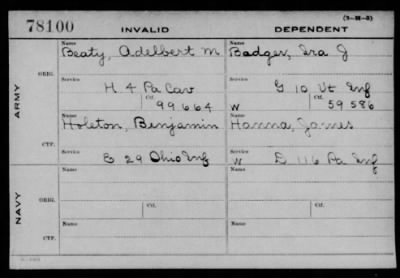 (3-M-5)
78100 INVALID DEPENDENT
Name Name
Beaty, Adelbert M Badger, Ira J
ORIG.
Service Service
H 4 Pa Cav G 10 Vt Inf
Ctf. Ctf.
99664 W 59586
ARMY
Name Name
Holeton, Benjamin Hanna, James
CTF.
Service Service
E 29 Ohio Inf W D 116 Pa Inf
Name Name
ORIG.
Service Ctf. Service Ctf.
NAVY
Name Name
CTF.
Service Service